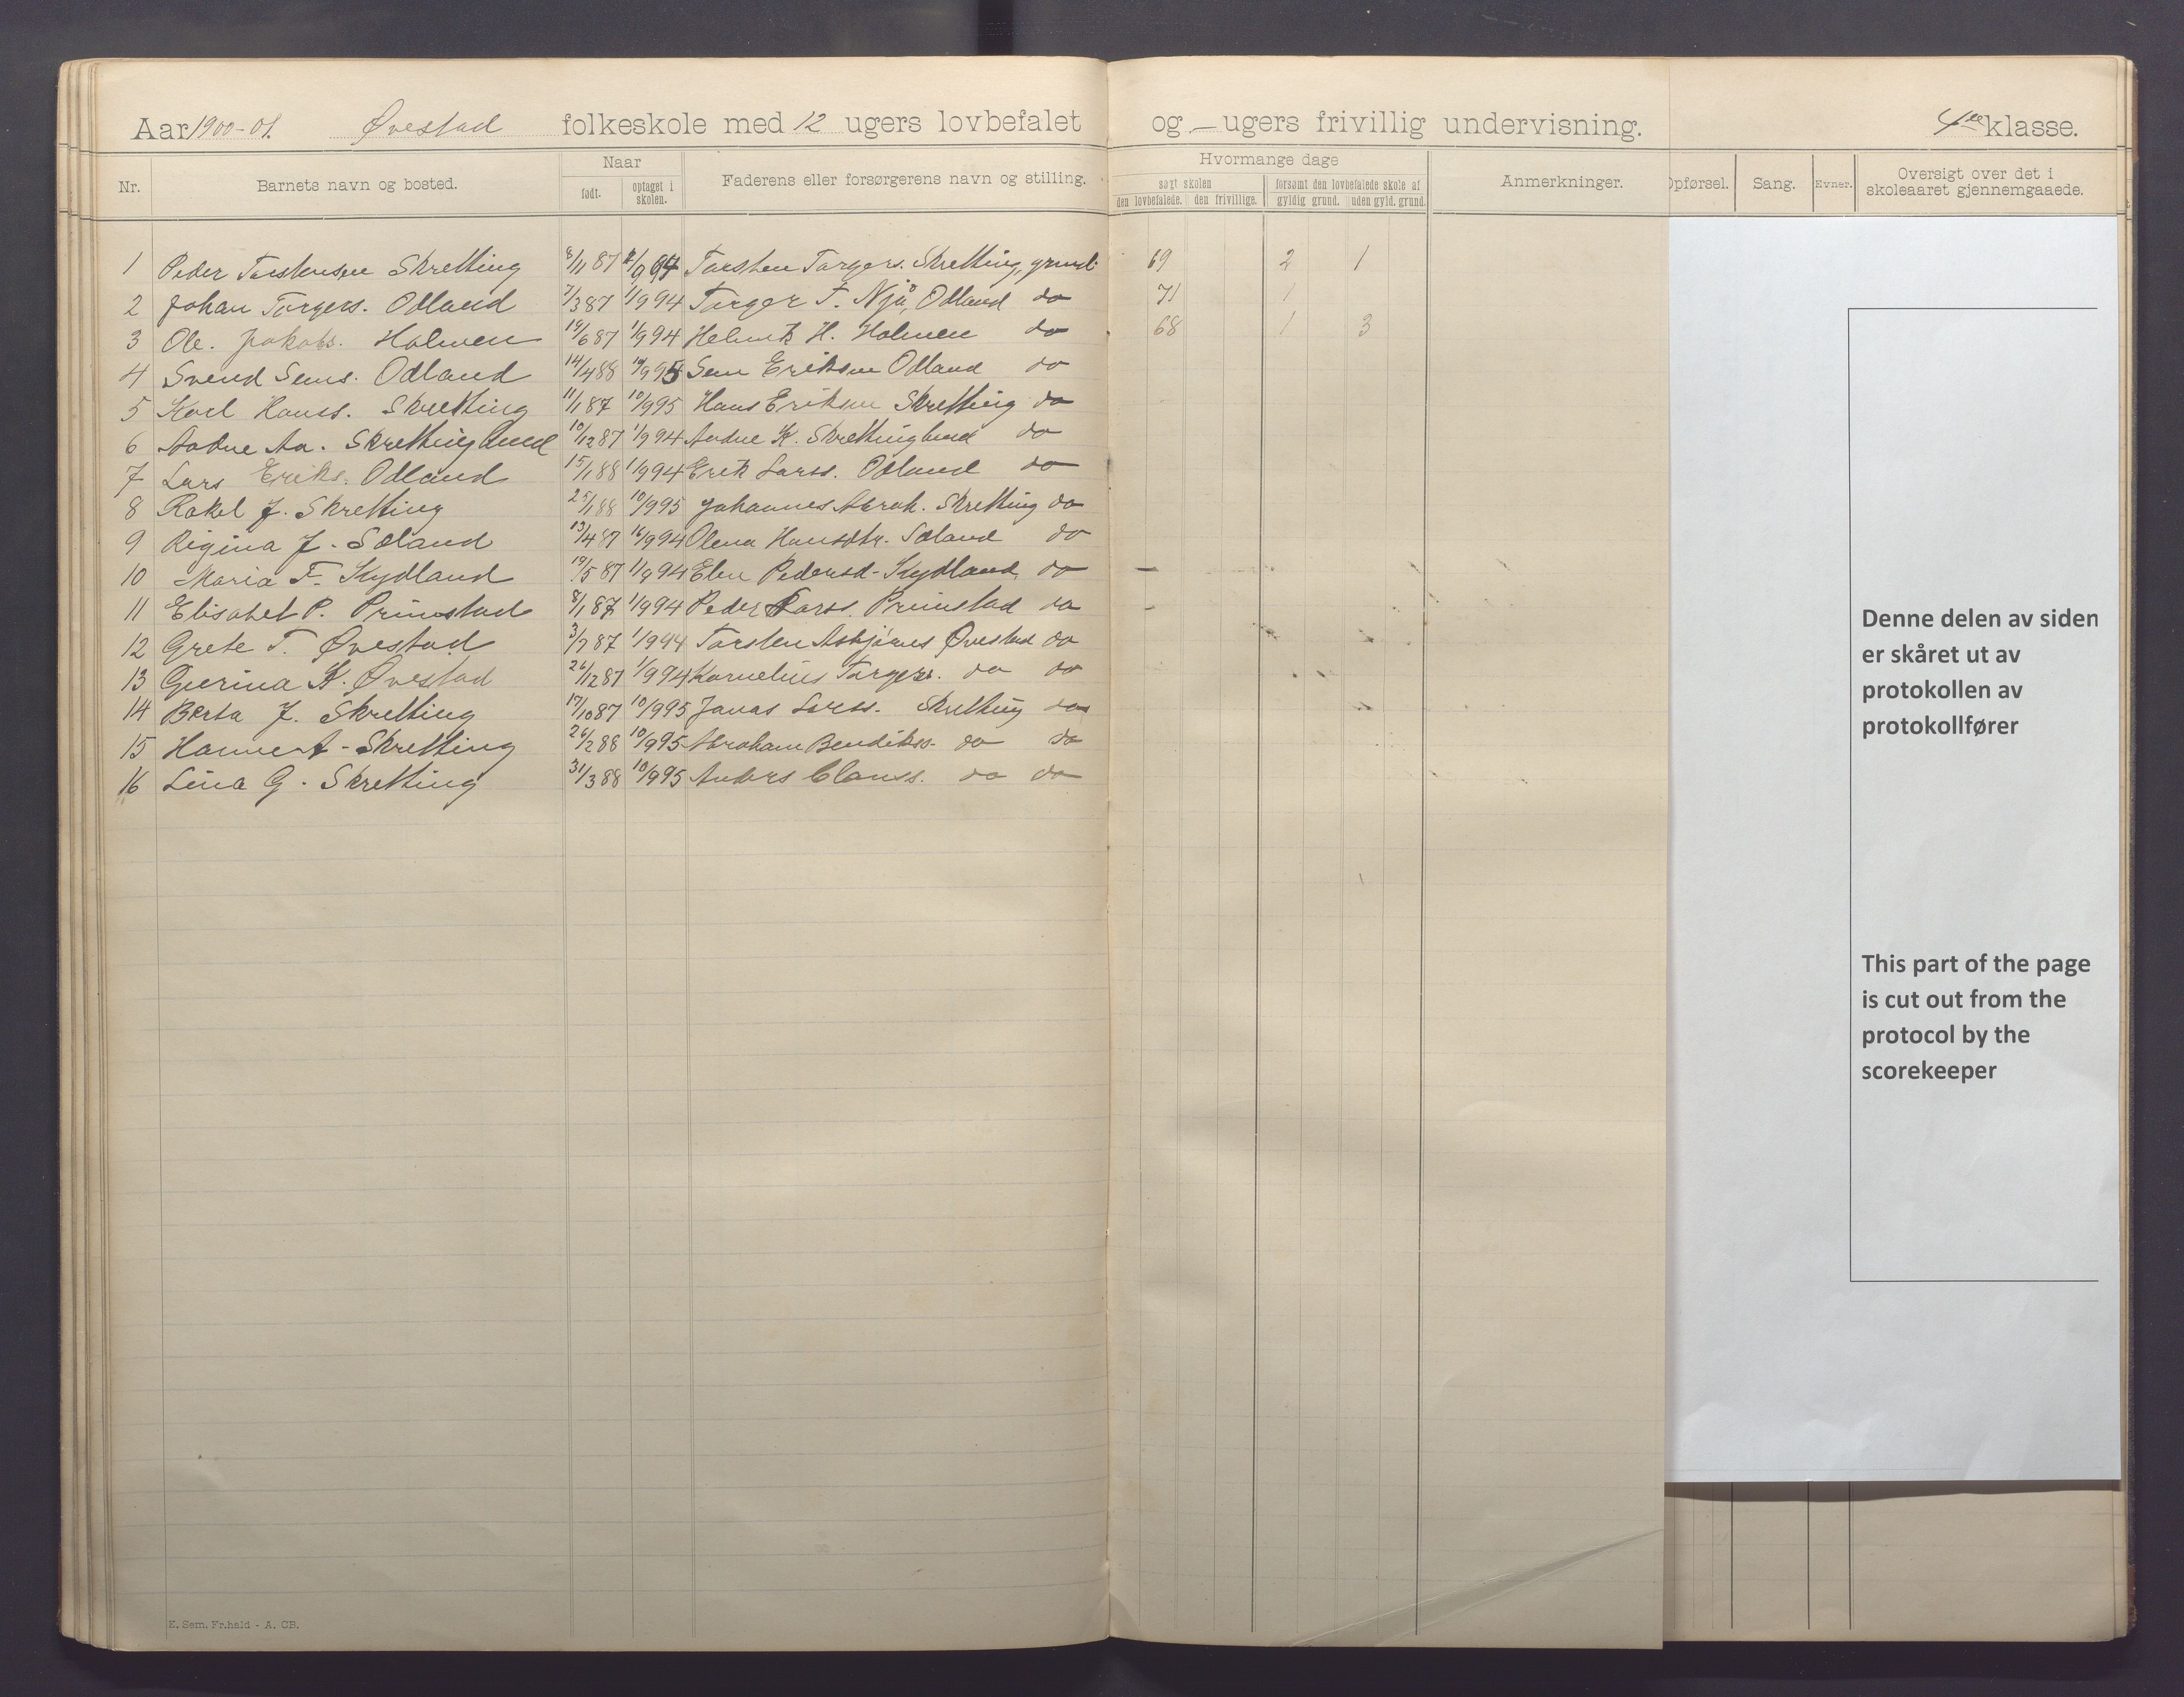 Aar 1900-01. Øvestad folkeskole med 12 ugers lovbefalet og — ugers frivillig undervisning. 4de klasse.
Nr. Barnets navn og bosted. Naar født. optaget i skolen. Faderens eller forsørgerens navn og stilling. Hvormange dage søgt skolen den lovbefalede. den frivillige. forsømt den lovbefalede skole af gyldig grund. uden gyld. grund. Anmerkninger. Opførsel. Sang. Evner. Oversigt over det i skoleaaret gjennemgaaede.
1 Peder Torstensen Skretting 8/11 87 1/9 94 Torsten Torgers. Skretting, grmd. 69 2 1
2 Johan Torgers. Odland 7/3 87 1/9 94 Torger T. Njå, Odland do 71 1
3 Ole. Jakobs. Holmen 19/6 87 1/9 94 Helmik H. Holmen do 68 1 3
4 Svend Sems. Odland 14/4 88 10/9 95 Sem Eriksen Odland do
5 Karl Hanss. Skretting 11/1 87 10/9 95 Hans Eriksen Skretting do
6 Aadne Aa. Skrettinglund 10/12 87 1/9 94 Aadne K. Skrettinglund do
7 Lars Eriks. Odland 15/1 88 1/9 94 Erik Larss. Odland do
8 Rakel J. Skretting 25/1 88 10/9 95 Johannes Abrah. Skretting do
9 Regina J. Søland 13/4 87 16/9 94 Olena Hansdtr. Søland do
10 Maria T. Kydland 19/5 87 1/9 94 Elen Pedersd. Kydland, do —
11 Elisabet P. Primstad 8/1 87 1/9 94 Peder Larss. Primstad do -
12 Grete T. Øvestad 3/7 87 1/9 94 Torsten Asbjørns Øvestad do
13 Gurina K. Øvestad 26/12 87 1/9 94 Kornelius Torgers. do do
14 Berta J. Skretting 17/10 87 10/9 95 Jonas Larss. Skretting do
15 Hanne A. Skretting 26/2 88 10/9 95 Abraham Bendikss. do do
16 Lina G. Skretting 31/3 88 10/9 95 Anders Clauss. do do
Denne delen av siden
er skåret ut av
protokollen av
protokollfører
This part of the page
is cut out from the
protocol by the
scorekeeper
E. Sem, Fr.hald - A. CB.